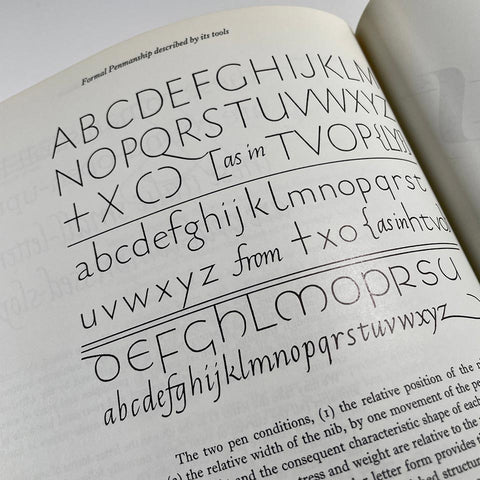 Formal Penmanship described by its tools
ABCDEFGHIJKLM
NOPQRSTUVWXYZ
+XO [as in TVOP{LLYB
abcdefghijklmnopqrst
uvwxyz from +xo {as in htvol
DEFGHLMOPRSU
abcdefghijklmnopqrstuvwxyz
The two pen conditions, (1) the relative position of the
the relative width of the nib, by one movement of the
and the consequent characteristic shape of each
and weight are relative to the
letter form provides
structure